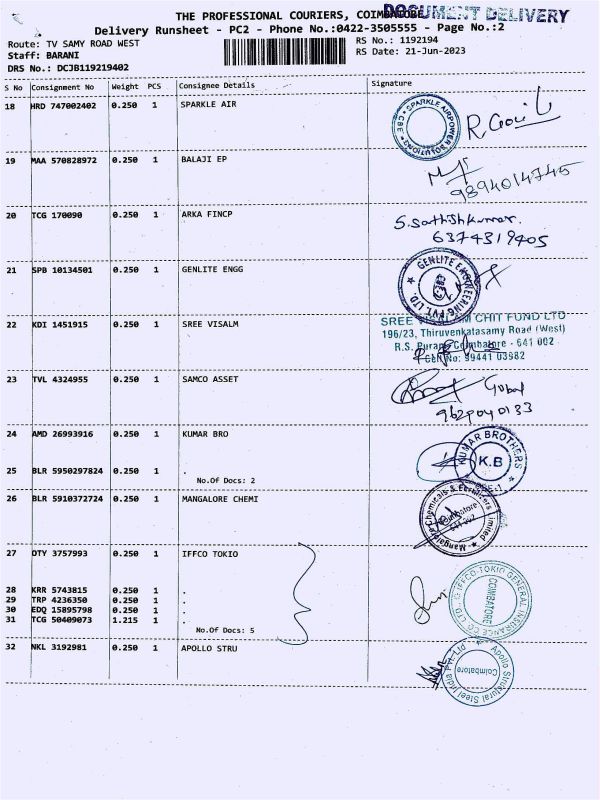 THE PROFESSIONAL COURIERS, COIMBATORE
DOCUMENT DELIVERY
Delivery Runsheet - PC2 - Phone No.:0422-3505555 - Page No.:2
Route: TV SAMY ROAD WEST
RS No.: 1192194
Staff: BARANI
RS Date: 21-Jun-2023
DRS No.: DCJB119219402
S No Consignment No Weight PCS Consignee Details Signature
18 HRD 747002402 0.250 1 SPARKLE AIR
SPARKLE AIRPOWER SOLUTIONS * CBE *
19 MAA 570828972 0.250 1 BALAJI EP
9894014745
20 TCG 170090 0.250 1 ARKA FINCP
S.Sathishkumar.
6374319405
21 SPB 10134501 0.250 1 GENLITE ENGG
GENLITE ENGINEERING PVT. LTD. * CBE
22 KDI 1451915 0.250 1 SREE VISALM
SREE CHIT FUND LTD
196/23, Thiruvenkatasamy Road (West)
R.S. Puram, Coimbatore - 641 002
Cell No: 99441 03982
23 TVL 4324955 0.250 1 SAMCO ASSET
Gobal
9629040133
24 AMD 26993916 0.250 1 KUMAR BRO
KUMAR BROTHERS
K.B
25 BLR 5950297824 0.250 1 .
No.Of Docs: 2
26 BLR 5910372724 0.250 1 MANGALORE CHEMI
Mangalore Chemicals & Fertilizers Limited
Coimbatore
641 002
27 OTY 3757993 0.250 1 IFFCO TOKIO
IFFCO-TOKIO GENERAL INSURANCE CO LTD.
COIMBATORE
28 KRR 5743815 0.250 1 .
29 TRP 4236350 0.250 1 .
30 EDQ 15895798 0.250 1 .
31 TCG 50409073 1.215 1 .
No.Of Docs: 5
32 NKL 3192981 0.250 1 APOLLO STRU
Apollo Structural Steel India Pvt. Ltd
Coimbatore